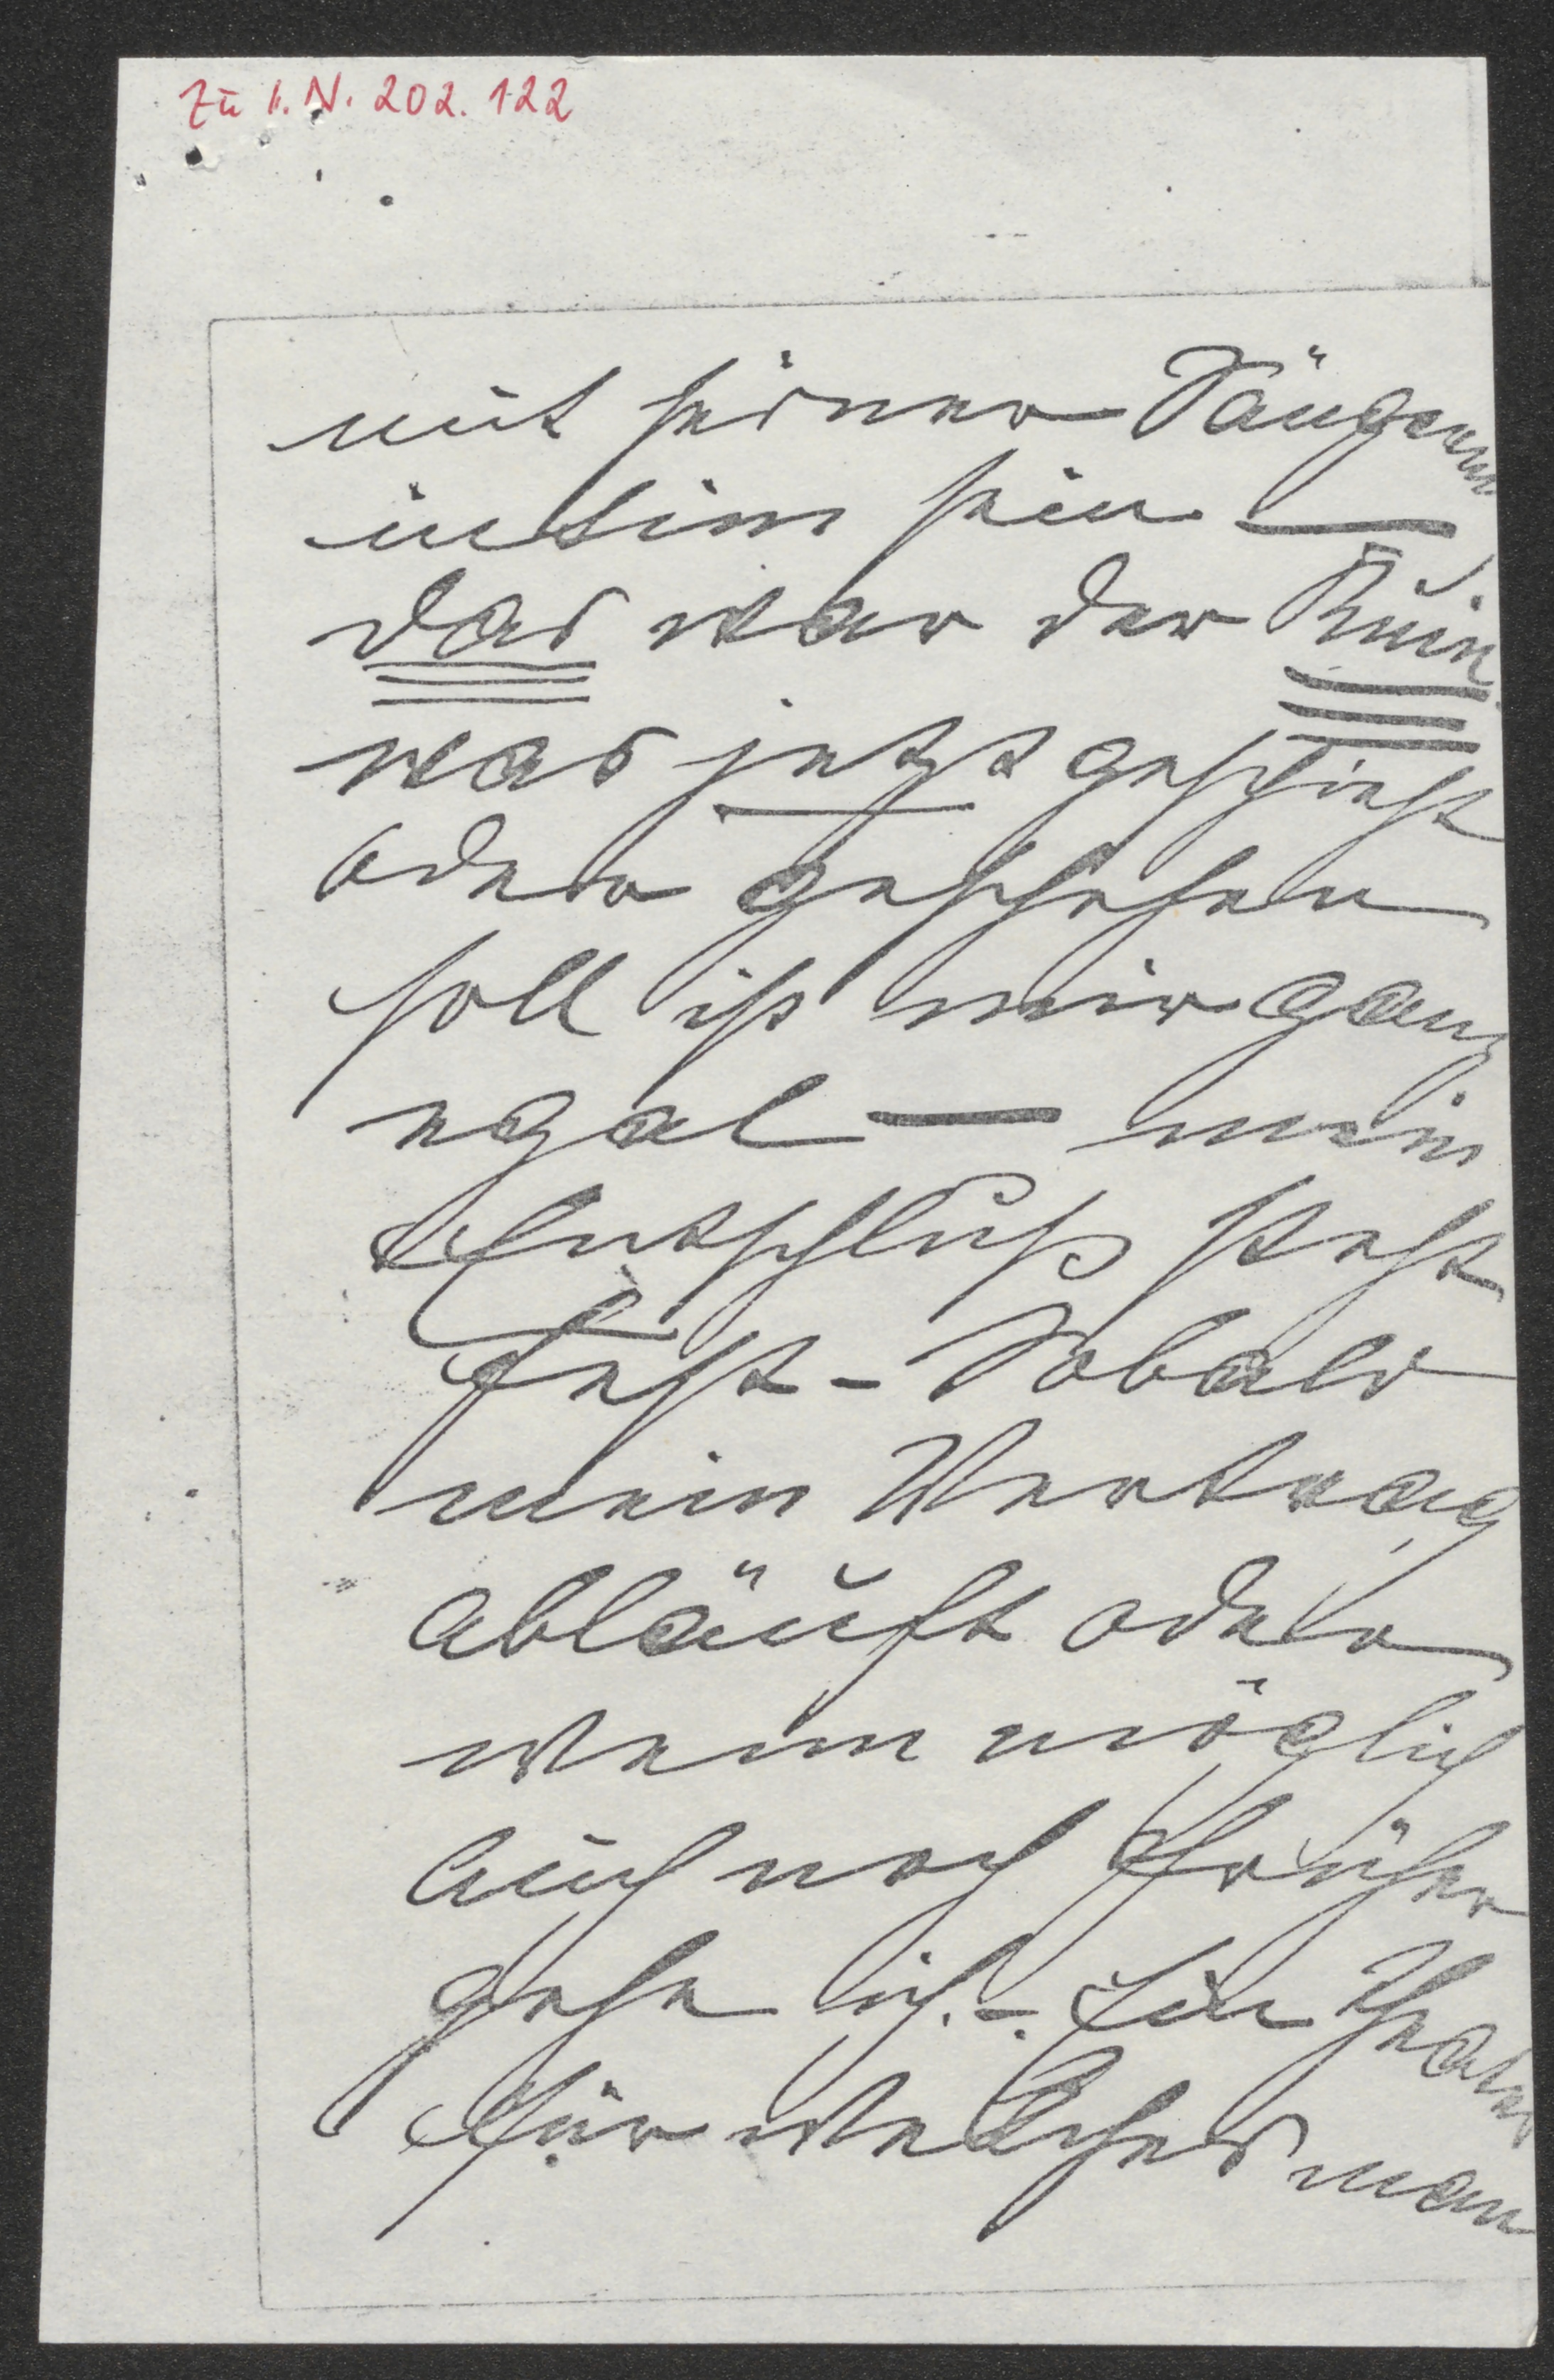 Zu I.N. 202.122
mit seiner Sängerin
intim sein —
das war der Ruin
was jetzt geschieht
oder geschehen
soll ist mir ganz
egal — mein
Entschluß steht
fest - Sobald
mein Vertrag
abläuft oder
wenn möglich
auch noch früher
gehe ich. - Ein Theater
für welches man